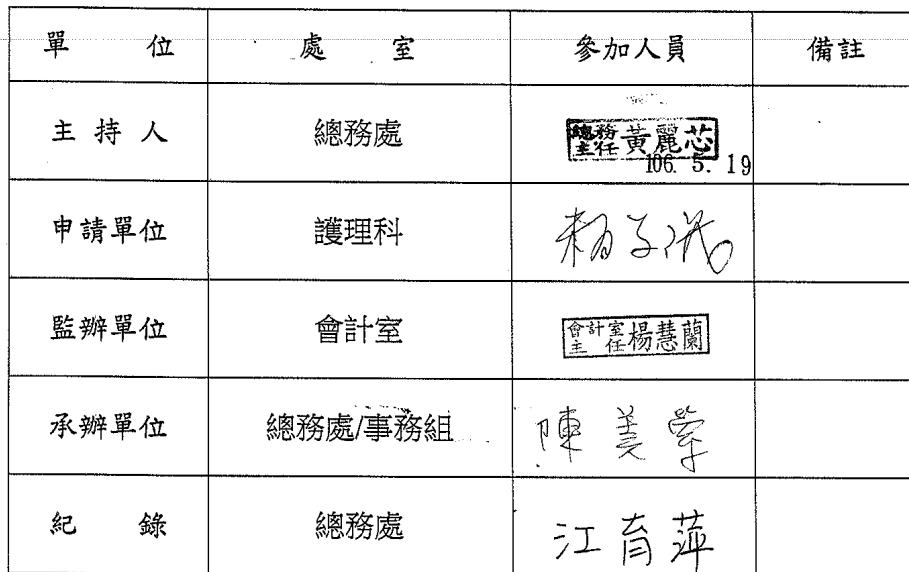 單 位 處 室 參加人員 備註
主持人 總務處 總務主任 黃麗芯
106. 5. 19
申請單位 護理科 賴
監辦單位 會計室 會計室主任 楊慧蘭
承辦單位 總務處/事務組 陳美
紀 錄 總務處 江育萍